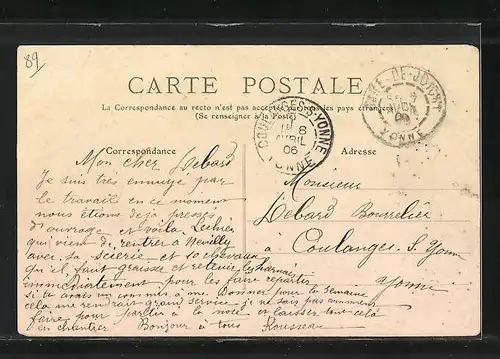 89
CARTE POSTALE
La Correspondance au recto n'est pas acceptée par tous les pays étrangers
(Se renseigner à la Poste)
COULANGES-S-YONNE
8
AVRIL
06
YONNE
DE-JOIGNY
YONNE
Correspondance
Adresse
Mon cher Debard
Je suis très ennuyé par
le travail en ce moment
nous étions déjà pressés
d'ouvrage et voilà
qui vient de rentrer à Neuilly
avec sa Scierie et 10 chevaux
qu'il faut graisse et retenir les harnais
immédiatement pour les faire repartir
si tu avais un commis à me donner pour la semaine
cela me rendrait grand service je ne sais pas comment
faire pour partir à la noce et laisser tout cela
en chantier Bonjour à tous Rousseau
Monsieur
Debard Bourrelier
à Coulanges S. Yonne
Yonne